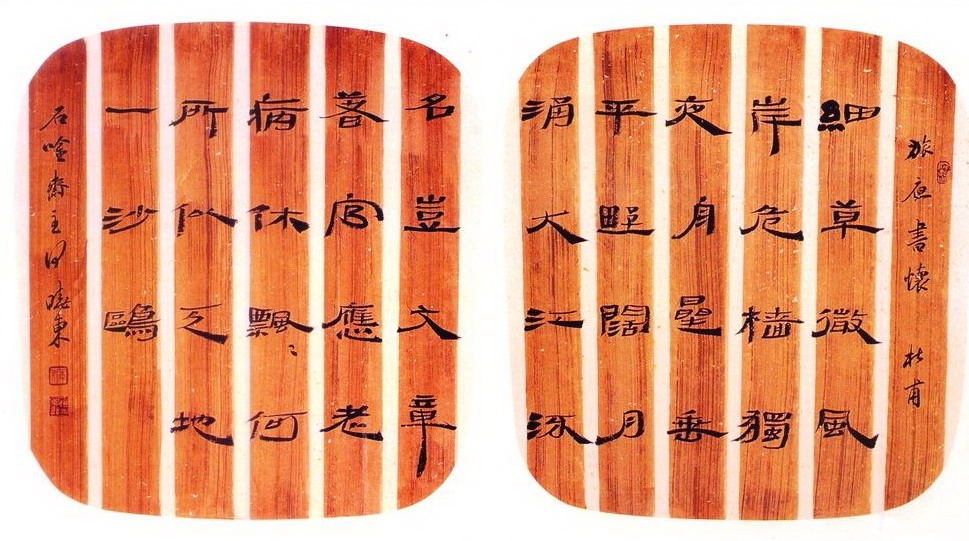 旅夜書懷 杜甫
細草微風
岸危檣獨
夜舟星垂
平野闊月
涌大江流
名豈文章
著官應老
病休飄〻何
所似天地
一沙鷗
石唅齋主何曉東